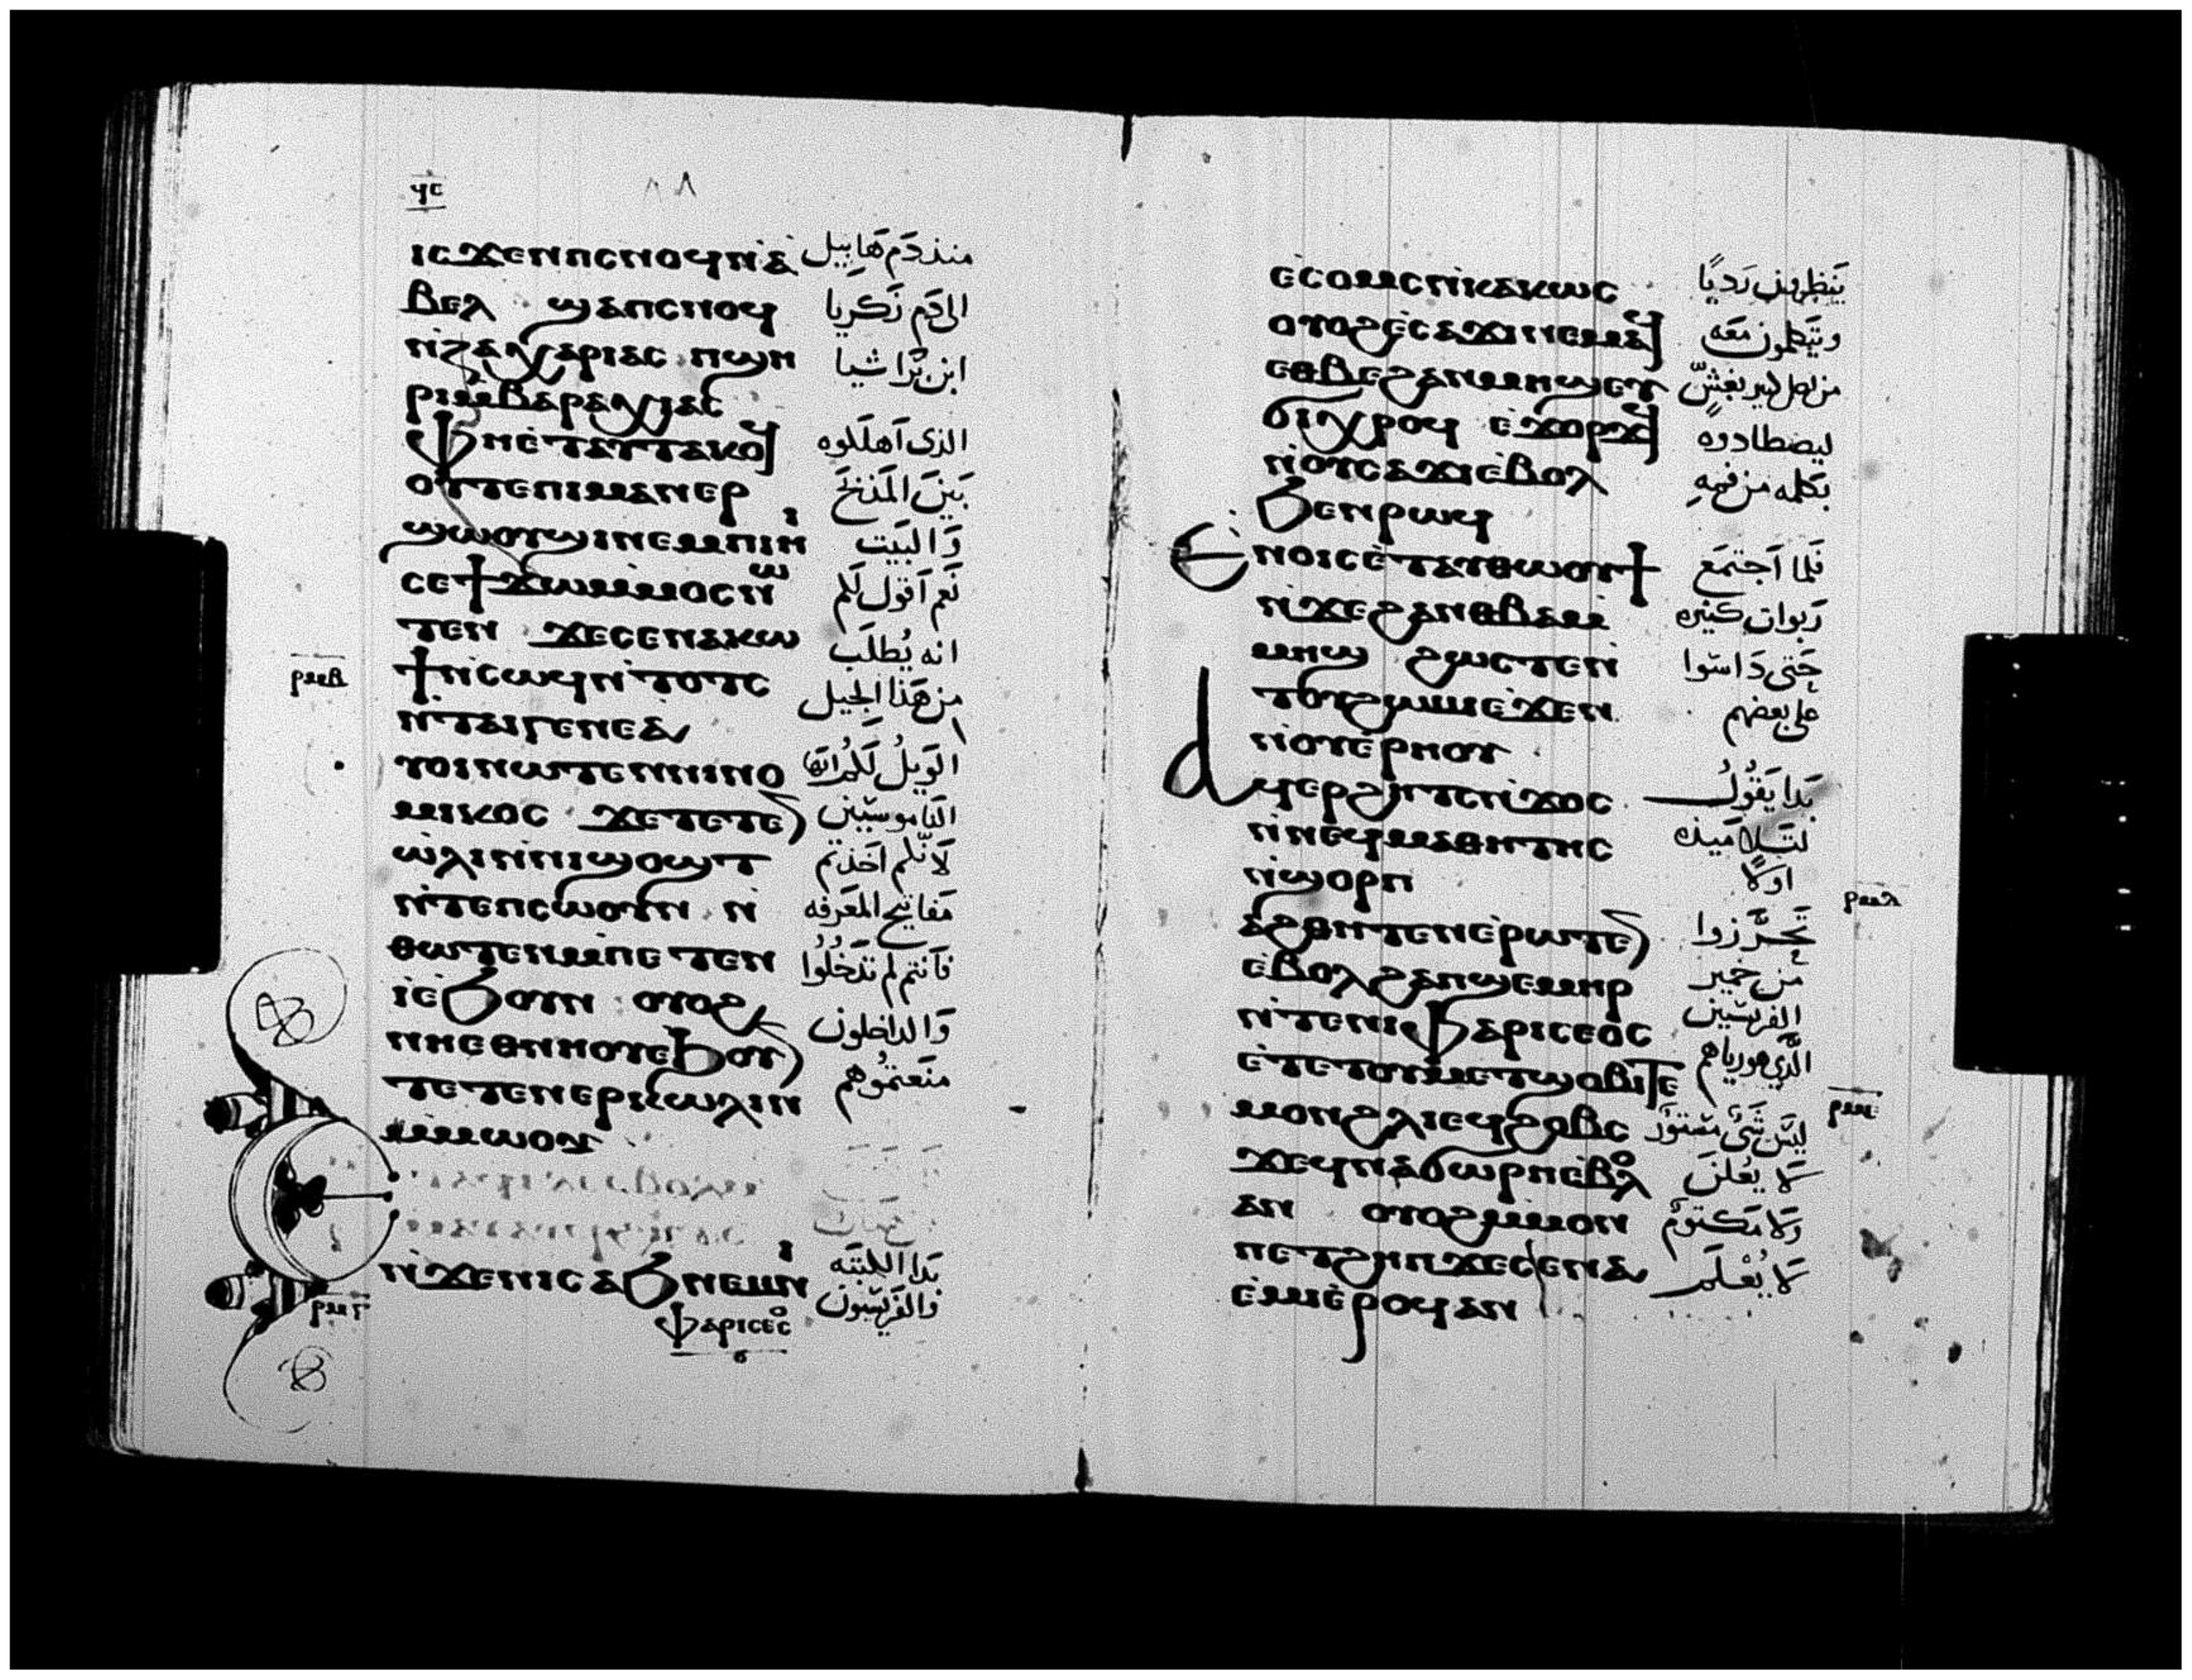 ϥⲥ
ⲓⲥϫⲉⲛⲡⲥⲛⲟϥⲛ̀ⲁ̀ منذ دَم هَابِيل
ⲃⲉⲗ ϣⲁⲡⲥⲛⲟϥ الى دَم زَكَريا
ⲛ̀ⲍⲁⲭⲁⲣⲓⲁⲥ ⲡϣⲏ ابن بَراشيا
ⲣⲓⲙ̀ⲃⲁⲣⲁⲭⲓⲁⲥ
ⲫⲏⲉ̀ⲧⲁⲩⲧⲁⲕⲟϥ الذى اَهلَلوه
ⲟⲩⲧⲉⲡⲓⲙⲁⲛⲉⲣ بَينَ المَذبَحَ
ϣⲱⲟⲩϣⲓⲛⲉⲙⲡⲓⲏⲓ وَالبَيت
ⲥⲉϯϫⲱⲙ̀ⲙⲟⲥⲛⲱ نَعم اَقول لَكم
ⲧⲉⲛ ϫⲉⲥⲉⲛⲁⲕⲱ انه يُطلَب
ϯⲛ̀ⲥⲱϥⲛ̀ⲧⲟⲧⲥ من هَذا الجيل
ⲣⲙⲃ
ⲛ̀ⲧⲁⲓⲅⲉⲛⲉⲁ
ⲩⲟⲓⲛⲱⲧⲉⲛⲛⲓⲛⲟ الوَيلُ لَكُم اَيّهَا
ⲙⲓⲕⲟⲥ ϫⲉⲧⲉⲧⲉⲛ الناموسيّين
ⲱ̀ⲗⲓⲛ̀ⲛⲓϣⲟϣⲧ لاَنّكم اخَذتم
ⲛ̀ⲧⲉⲡⲥⲱⲟⲩⲛ ⲛ̀ مَفاتيح المَعَرفه
ⲑⲱⲧⲉⲛⲙ̀ⲡⲉⲧⲉⲛ فاَنتم لم تدَخُلوُا
ⲓ̀ⲉ̀ϧⲟⲩⲛ ⲟⲩⲟϩ وَالداخلون
ⲛⲏⲉⲑⲛⲏⲟⲩⲉ̀ϧⲟⲩⲛ منَعتموُهم
ⲧⲉⲧⲉⲛⲉⲣⲕⲱⲗⲓⲛ
ⲙ̀ⲙⲱⲟⲩ
ⲛ̀ϫⲉⲛⲓⲥⲁϧⲛⲉⲙⲛⲓ بَدا الكتبَه
ⲣⲙⲅ
ⲫⲁⲣⲓⲥⲉⲟⲥ والفَريسّيون
ⲉ̀ⲥⲟⲙⲥⲛ̀ⲕⲁⲕⲱⲥ يَنظرون رَديًا
ⲟⲩⲟϩⲉ̀ⲥⲁϫⲓⲛⲉⲙⲁϥ ويَتكلمون مَعَه
ⲉⲑⲃⲉϩⲁⲛⲙⲏϣⲉⲩ
ϭⲓⲭⲣⲟϥ ⲉ̀ϫⲟⲣϫϥ ليصَطادوه
ⲛ̀ⲟⲩⲥⲁϫⲓⲉ̀ⲃⲟⲗ بكلمه من فمهِ
ϧⲉⲛⲣⲱϥ
ⲉ̀ⲛⲟⲓⲥⲉ̀ⲧⲁⲩⲑⲱⲟⲩϯ فَلما اَجتمَع
ⲛ̀ϫⲉϩⲁⲛⲑⲃⲁⲙ̀ رَبوات كثيره
ⲙⲏϣ ϩⲱⲥⲧⲉⲛ̀ حَتى دَاسَوا
ⲧⲟⲩϩⲱⲙⲓⲉ̀ϫⲉⲛ على بعضهم
ⲛⲟⲩⲉ̀ⲣⲏⲟⲩ
ⲁϥⲉⲣϩⲏⲧⲥⲛ̀ϫⲟⲥ بَدا يَقوُلُ
ⲛ̀ⲛⲉϥⲙⲁⲑⲏⲧⲏⲥ لتَلاميذه
ⲛ̀ϣⲟⲣⲡ اولاً
ⲣⲙⲇ
ⲁϩⲑⲏⲧⲉⲛⲉ̀ⲣⲱⲧⲉⲛ تحَرَّزوا
ⲉ̀ⲃⲟⲗϩⲁⲡϣⲉⲙⲏⲣ من خمير
ⲛ̀ⲧⲉⲛⲓⲫⲁⲣⲓⲥⲉⲟⲥ الفَريسّيين
ⲉ̀ⲧⲉⲧⲟⲩⲙⲉⲧϣⲟⲃⲓⲧⲉ الّذي هو رياهم
ⲙⲟⲛϩⲗⲓⲉϥϩⲟⲃⲥ ليَس شَئ مَستوُر
ⲣⲙⲉ
ϫⲉϥⲛⲁϭⲱⲣⲡⲉ̀ⲃⲟⲗ لا يُعلَن
ⲁⲛ ⲟⲩⲟϩⲙ̀ⲙⲟⲛ وَلا مَكتوُم
ⲡⲉⲧϩⲏⲡϫⲉⲥⲉⲛⲁ لا يُعْلَم
ⲉ̀ⲙⲓⲉ̀ⲣⲟϥⲁⲛ